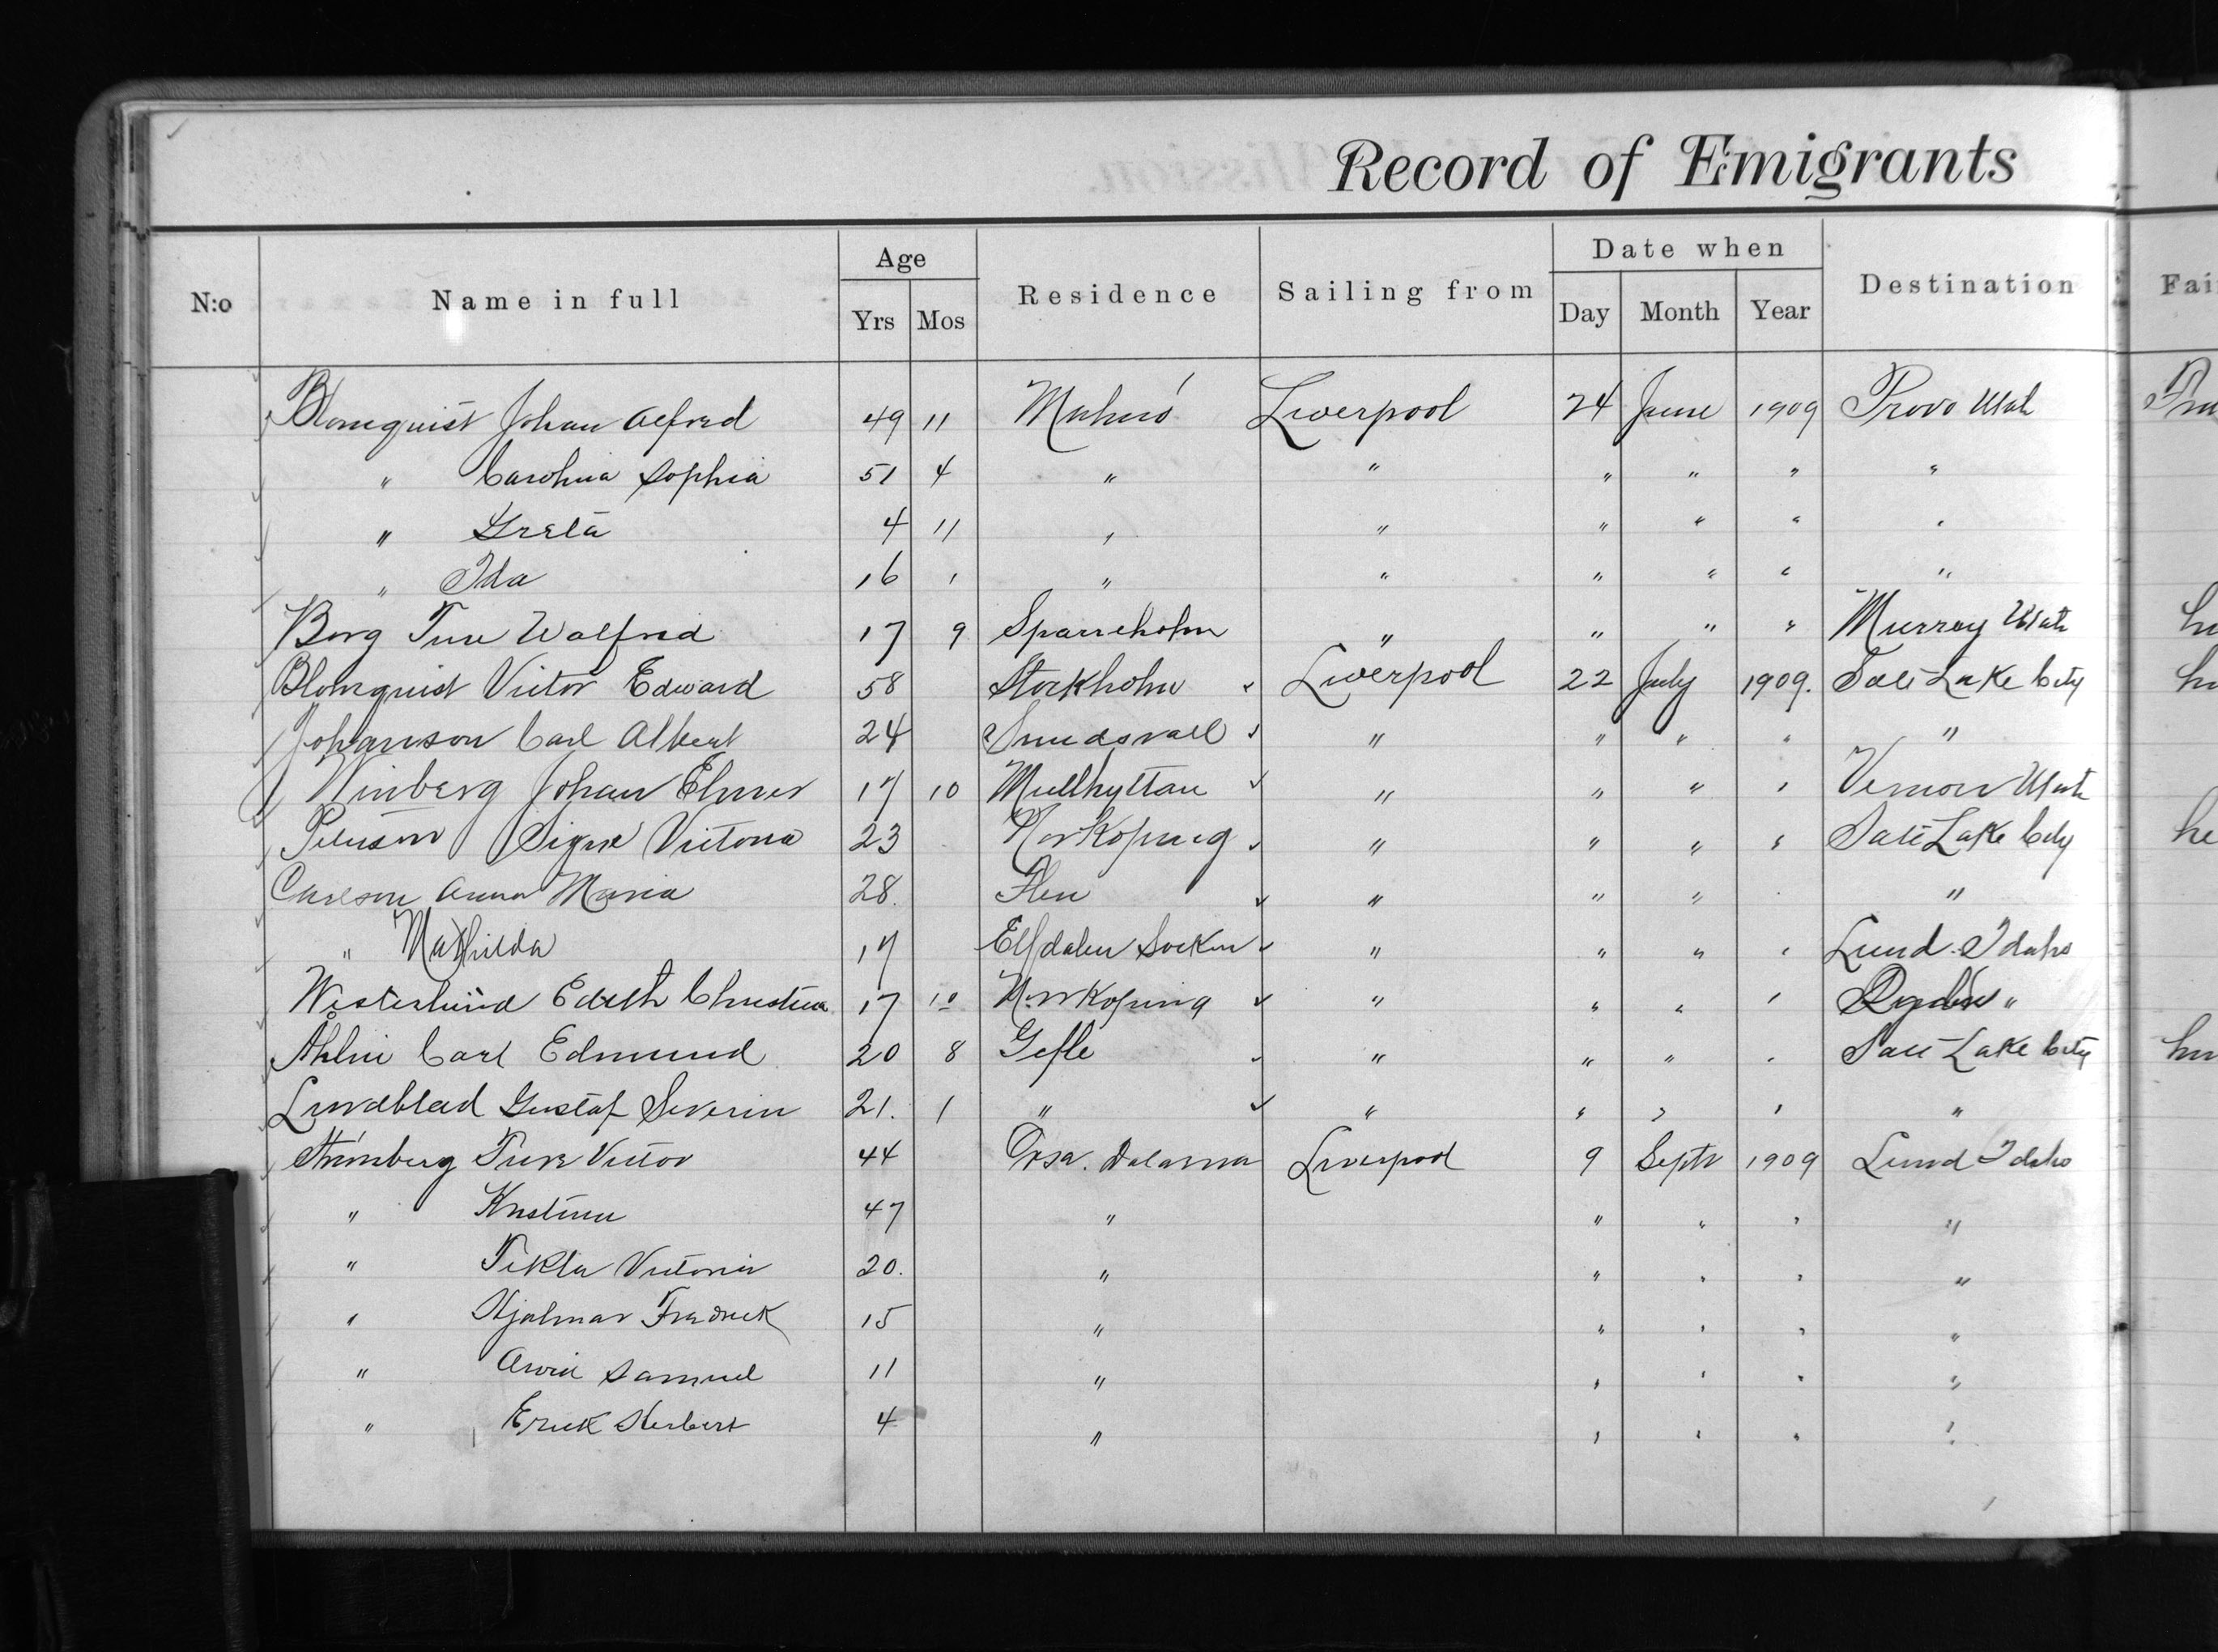 Record of Emigrants
N:o Name in full Age Residence Sailing from Date when Destination Fai
Yrs Mos Day Month Year
Blomquist Johan Alfred 49 11 Malmö Liverpool 24 June 1909 Provo Utah
" Carolina Sophia 51 4 " " " " " "
" Greta 4 11 " " " " " "
" Ida 16 1 " " " " " "
Borg Ture Walfrid 17 9 Sparreholm " " " " Murray Utah
Blomquist Victor Edward 58 Stockholm Liverpool 22 July 1909. Salt Lake City
Johanson Carl Albert 24 Sundsvall " " " " "
Winberg Johan Elmer 17 10 Mullhyttan " " " " Vernon Utah
Peterson Signe Victoria 23 Norkoping " " " " Salt Lake City
Carlson Anna Maria 28. Flen " " " " "
" Mathilda 17 Elfdalen Socken " " " " Lund. Idaho
Westerlund Edith Christina 17 10 Norkoping " " " " "
Åhlin Carl Edmund 20 8 Gefle " " " " Salt Lake City
Lundblad Gustaf Severin 21. 1 " " " " " "
Strömberg Ture Victor 44 Orsa. Dalarna Liverpool 9 Septr 1909 Lund Idaho
" Kristina 47 " " " " "
" Tekla Victoria 20. " " " " "
" Hjalmar Fredrick 15 " " " " "
" Arvid Samuel 11 " " " " "
" Erick Herbert 4 " " " " "